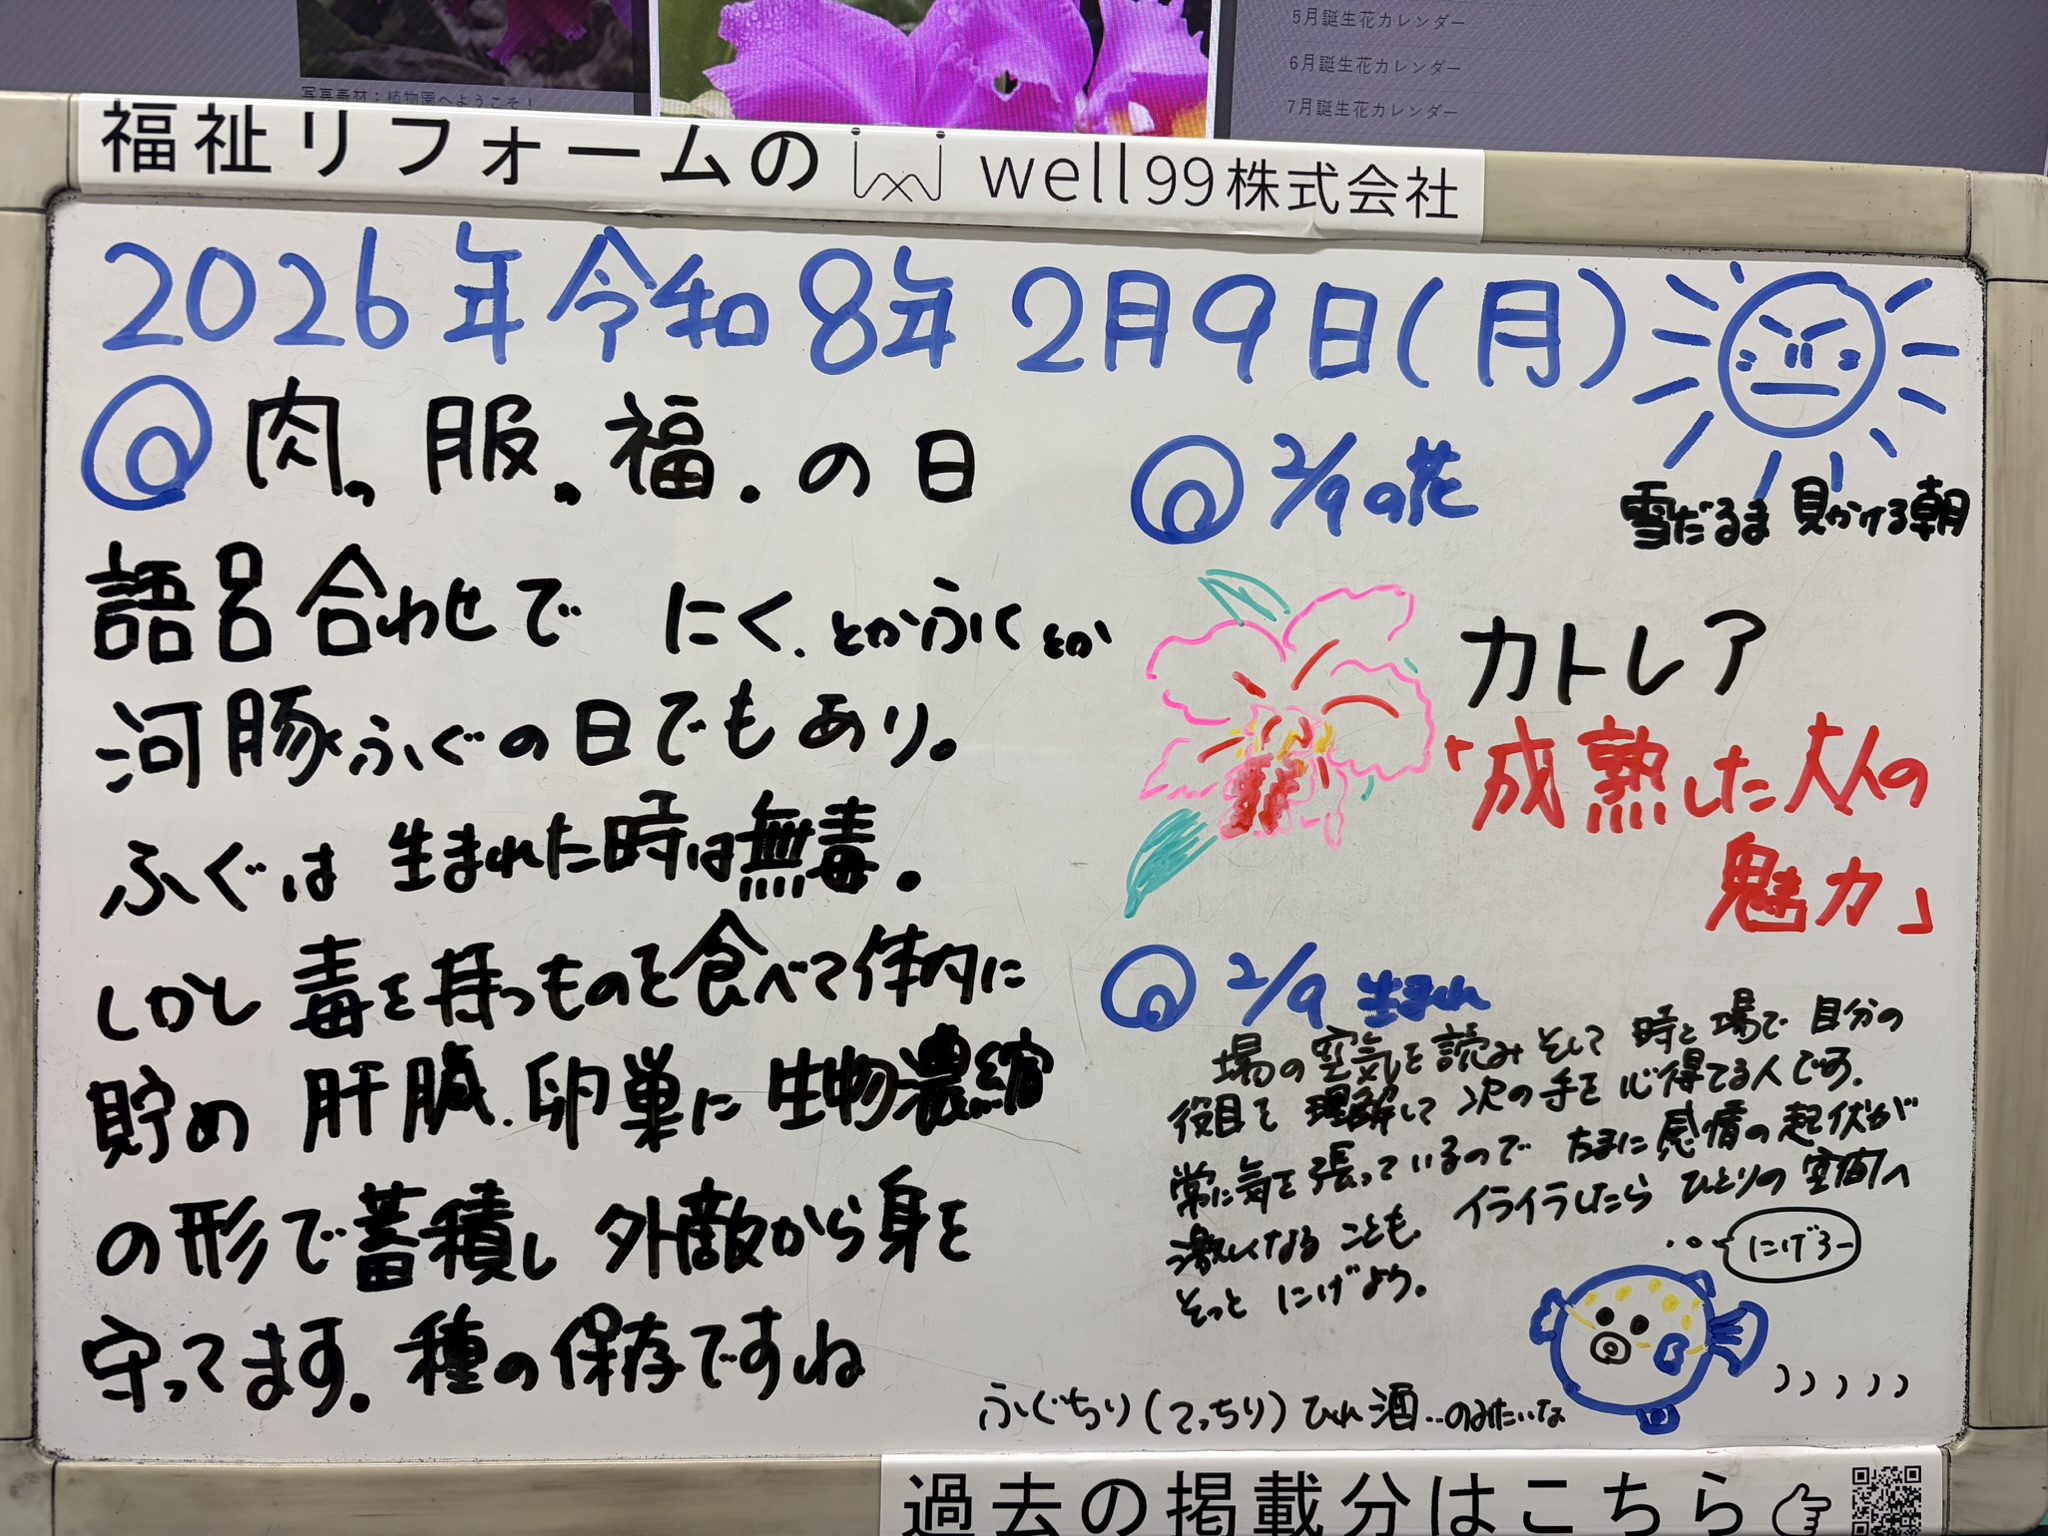 5月誕生花カレンダー
6月誕生花カレンダー
7月誕生花カレンダー
写真素材：植物園へようこそ！
福祉リフォームの well99株式会社
2026年令和8年 2月9日(月)
肉、服、福．の日
語呂合わせで にく．とかふくとか
河豚ふぐの日でもあり。
ふぐは 生まれた時は無毒。
しかし 毒を持つものを食べて体内に
貯め 肝臓．卵巣に生物濃縮
の形で蓄積し 外敵から身を
守ってます。種の保存ですね
2/9の花
雪だるま 見かける朝
カトレア
「成熟した大人の
魅力」
2/9 生まれ
場の空気を読みそして 時と場で 自分の
役目を 理解して 次の手を 心得てる人です。
常に気を張っているので たまに感情の起伏が
激しくなる ことも。イライラしたら ひとりの空間へ
そっと にげよう。
にげろー
ふぐちり(てっちり)ひれ酒…のみたいな
過去の掲載分はこちら